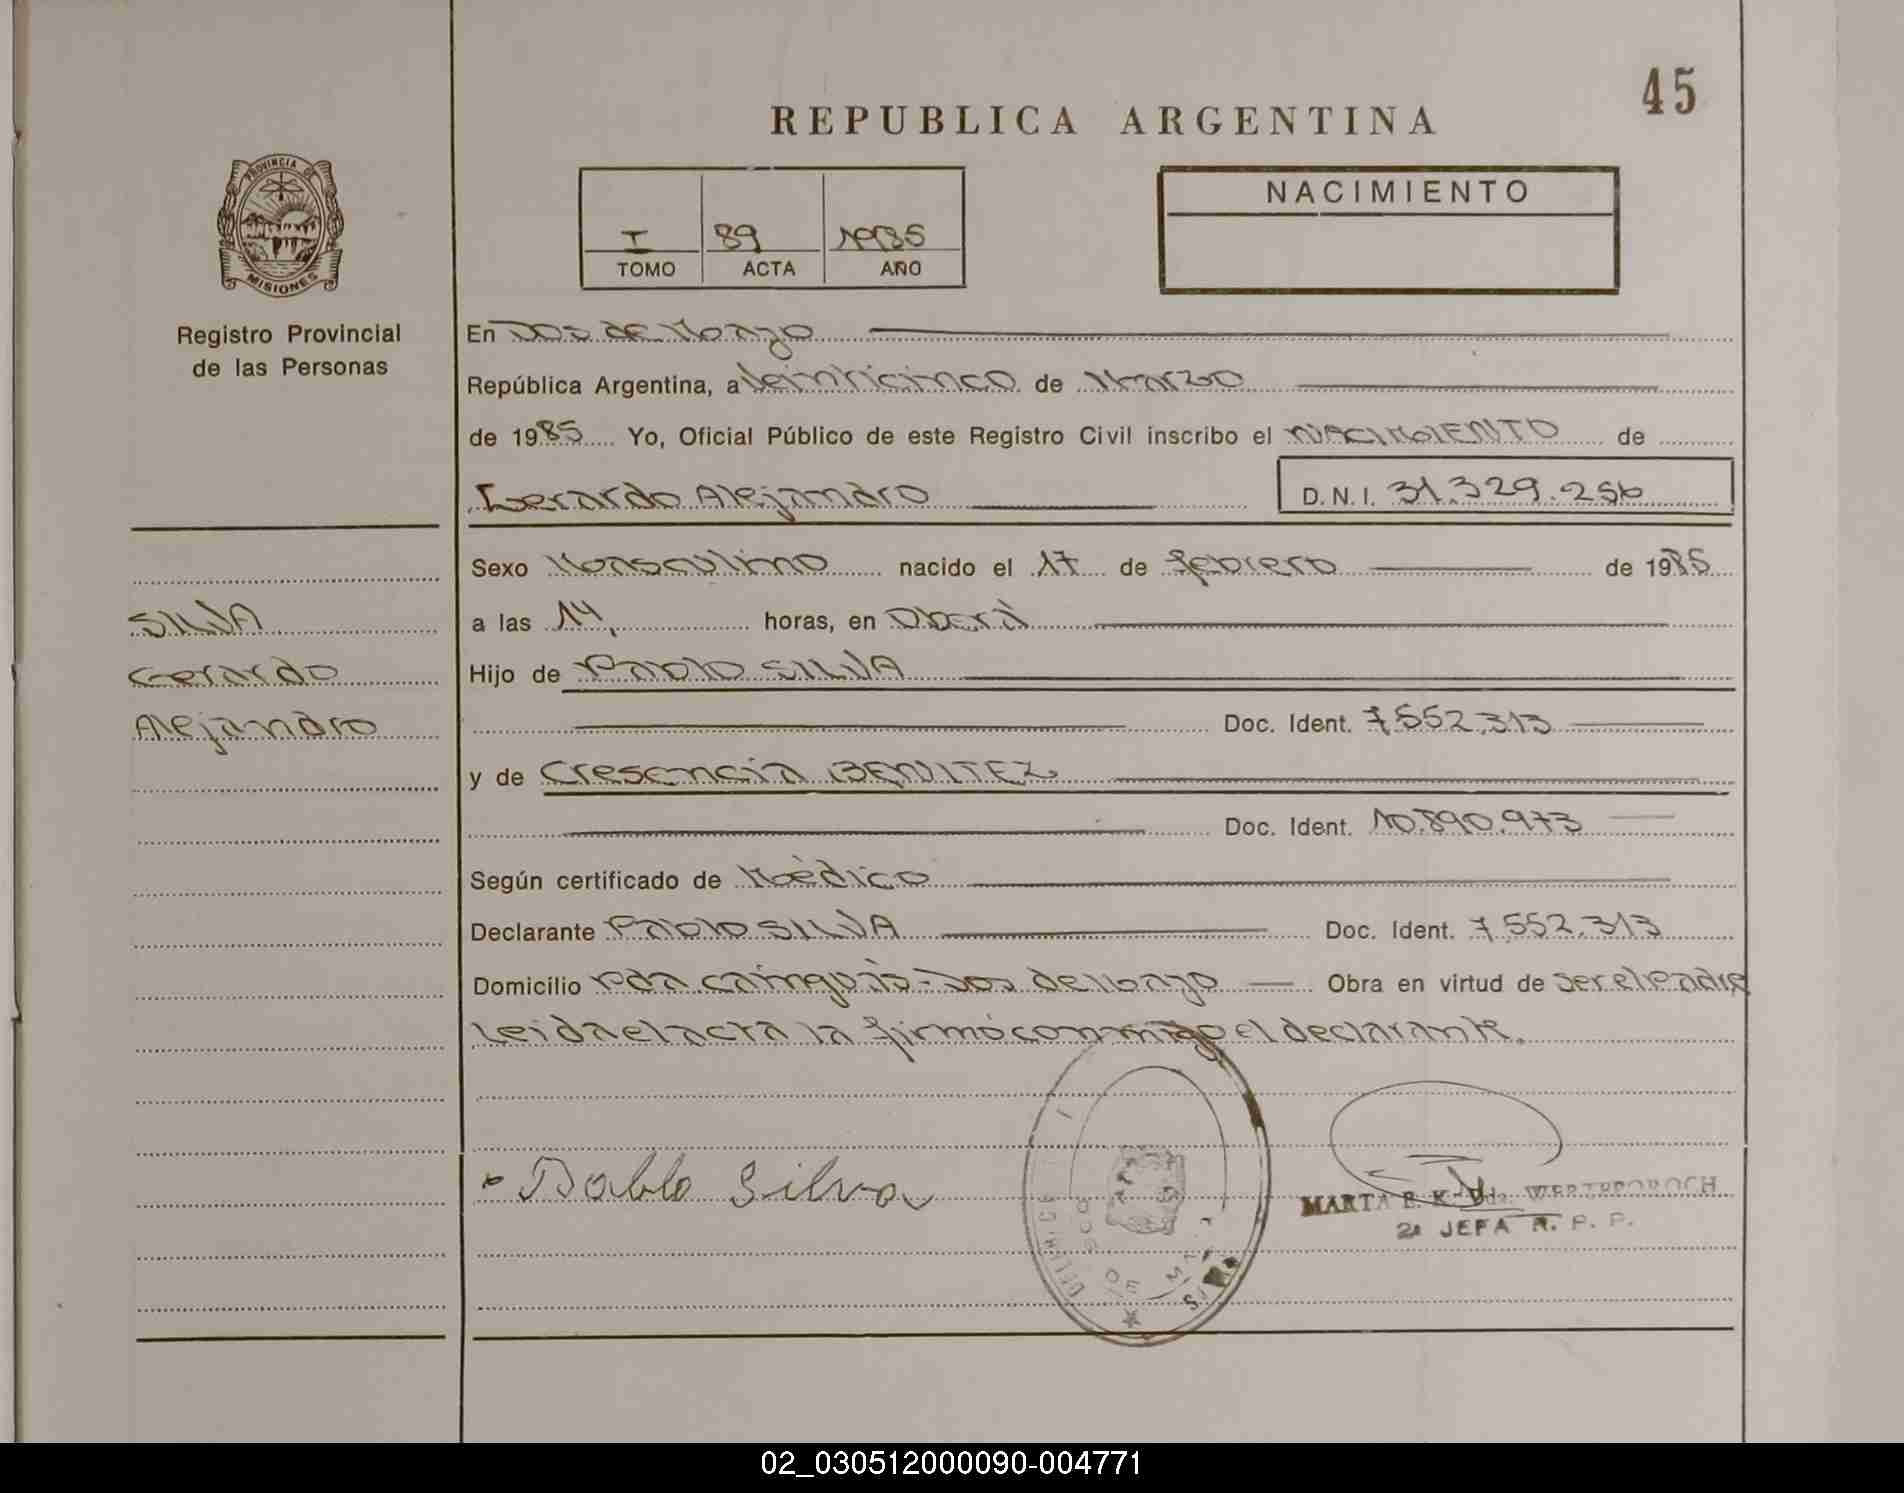 45
REPUBLICA ARGENTINA
PROVINCIA DE
MISIONES
Registro Provincial
de las Personas
I 89 1985
TOMO ACTA AÑO
NACIMIENTO
En Dos de Mayo
República Argentina, a Veinticinco de Marzo
de 1985 Yo, Oficial Público de este Registro Civil inscribo el NACIMIENTO de
Gerardo Alejandro D.N.I. 31.329.256
Sexo Masculino nacido el 17 de febrero de 1985
SILVA
a las 14, horas, en Oberá
Gerardo
Hijo de Pablo SILVA
Alejandro
Doc. Ident. 7.552.313
y de Crescencia BENITEZ
Doc. Ident. 10.890.973
Según certificado de Mèdico
Declarante Pablo SILVA Doc. Ident. 7.552.313
Domicilio Pda cainguás - Dos de Mayo Obra en virtud de ser el Padre
Leida el acta la firmó conmigo el declarante.
Pablo Silva
DOS DE MAYO
MARTA E. K. Vda.
2a JEFA R. P. P.
02_030512000090-004771